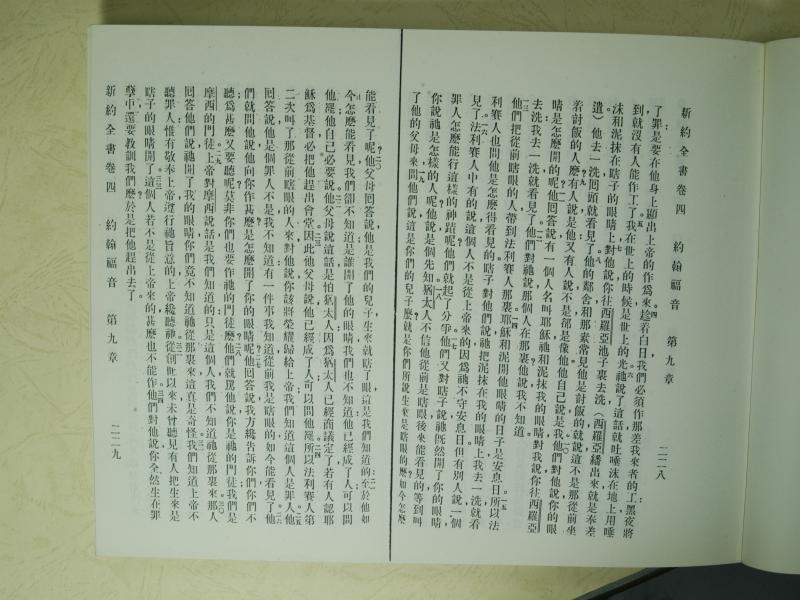 新約全書卷四　約翰福音　第九章　二二八
了罪是要在他身上顯出上帝的作爲來。四趁着白日我們必須作那差我來者的工黑夜將
到就沒有人能作工了。五我在世上的時候是世上的光。六祂說了這話就吐唾沫在地上用唾
沫和泥抹在瞎子的眼睛上七對他說你往西羅亞池子裏去洗（西羅亞繙出來就是奉差
遣）他去一洗回頭就看見了。八他的鄰舍和那素常見他是討飯的就說這不是那從前坐
着討飯的人麼？九有人說是他又有人說不是卻是像他他自己說是我。一〇他們對他說你的眼
睛是怎麼開的呢？一一他回答說有一個人名叫耶穌祂和泥抹我的眼睛對我說你往西羅亞
去洗我去一洗就看見了。一二他們對祂說那個人在那裏他說我不知道。
一三他們把從前瞎眼的人帶到法利賽人那裏一四耶穌和泥開他眼睛的日子是安息日。一五所以法
利賽人也問他是怎麼得看見的瞎子對他們說祂把泥抹在我的眼睛上我去一洗就看
見了。一六法利賽人中有的說這個人不是從上帝來的因爲祂不守安息日但有別人說一個
罪人怎麼能行這樣的神蹟呢？他們就起了分爭。一七他們又對瞎子說祂旣然開了你的眼睛
你說祂是怎樣的人呢？他說是個先知。一八猶太人不信他從前是瞎眼後來能看見的等到叫
了他的父母來一九問他們說這是你們的兒子麼？就是你們所說生來是瞎眼的麼？如今怎麼
能看見了呢？二〇他父母回答說他是我們的兒子生來就瞎了眼這是我們知道的二一至於他如
今怎麼能看見我們卻不知道是誰開了他的眼睛我們也不知道他已經成了人可以問
他罷他自己必要說。二二他父母說這話是怕猶太人因爲猶太人已經商議定了若有人認耶
穌爲基督必把他趕出會堂。二三因此他父母說他已經成了人可以問他罷。二四所以法利賽人第
二次叫了那從前瞎眼的人來對他說你該將榮耀歸給上帝我們知道這個人是罪人。二五他
回答說他是個罪人不是我不知道有一件事我知道從前我是瞎眼的如今能看見了。二六他
們就問他說他向你作甚麼？是怎麼開了你的眼睛呢？二七他回答說我方纔告訴你們你們不
聽爲甚麼又要聽呢？莫非你們也要作祂的門徒麼？二八他們就罵他說你是祂的門徒我們是
摩西的門徒。二九上帝對摩西說話是我們知道的只是這個人我們不知道祂從那裏來。三〇那人
回答他們說祂開了我的眼睛你們竟不知道祂從那裏來這眞是奇怪。三一我們知道上帝不
聽罪人惟有敬奉上帝遵行祂旨意的上帝纔聽祂。三二從創世以來未曾聽見有人把生來是
瞎子的眼睛開了。三三這個人若不是從上帝來的甚麼也不能作。三四他們對他說你全然生在罪
孽中還要敎訓我們麼？於是把他趕出去了。
新約全書卷四　約翰福音　第九章　二二九